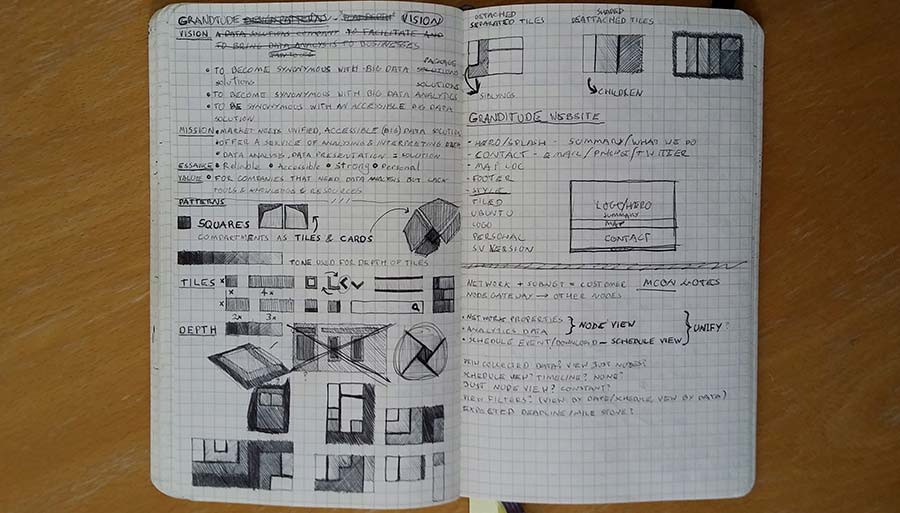 GRANDITUDE DESIGN PATTERNS VISION
VISION A DATA SOLUTIONS COMPANY TO FACILITATE AND
TO BRING DATA ANALYSIS TO BUSINESSES
• TO BECOME SYNONYMOUS WITH BIG DATA PACKAGE SOLUTIONS
solutions SOLUTIONS
• TO BECOME SYNONYMOUS WITH BIG DATA ANALYTICS
• TO BE SYNONYMOUS WITH AN ACCESSIBLE BIG DATA
SOLUTION
MISSION • MARKET NEEDS UNIFIED, ACCESSIBLE (BIG) DATA SOLUTION
• OFFER A SERVICE OF ANALYSING & INTERPRETING DATA
• DATA ANALYSIS, DATA PRESENTATION = SOLUTION
ESSANCE • Reliable • Accessible • Strong • Personal
VALUE • FOR COMPANIES THAT NEED DATA ANALYSIS BUT LACK
TOOLS & KNOWLEDGE & RESOURCES
PATTERNS
SQUARES
COMPARTMENTS AS TILES & CARDS
TONE USED FOR DEPTH OF TILES
TILES x x
x 4x
x x
2x 3x
DEPTH
DETACHED
SEPARATED TILES
SHADED
DEATTACHED TILES
SIBLYNGS
CHILDREN
GRANDITUDE WEBSITE
- HERO/SPLASH - SUMMARY/WHAT WE DO
- CONTACT - EMAIL/PHONE/TWITTER
- MAP LOC
- FOOTER
- STYLE
TILED
UBUNTU
LOGO
PERSONAL
SV VERSION
LOGO/HERO
SUMMARY
MAP
CONTACT
NETWORK + SUBNET = CUSTOMER MCON NOTES
NODE GATEWAY → OTHER NODES
• NETWORK PROPERTIES
• ANALYTICS DATA } NODE VIEW
• SCHEDULE EVENT/DOWNLOAD - SCHEDULE VIEW } UNIFY?
COLLECTED DATA? VIEW JUST NODES?
SCHEDULE VIEW? TIMELINE? NONE?
JUST NODE VIEW? CONSTANT?
VIEW FILTERS? (VIEW BY DATE/SCHEDULE VIEW BY DATA)
EXPECTED DEADLINE/MILE STONE?